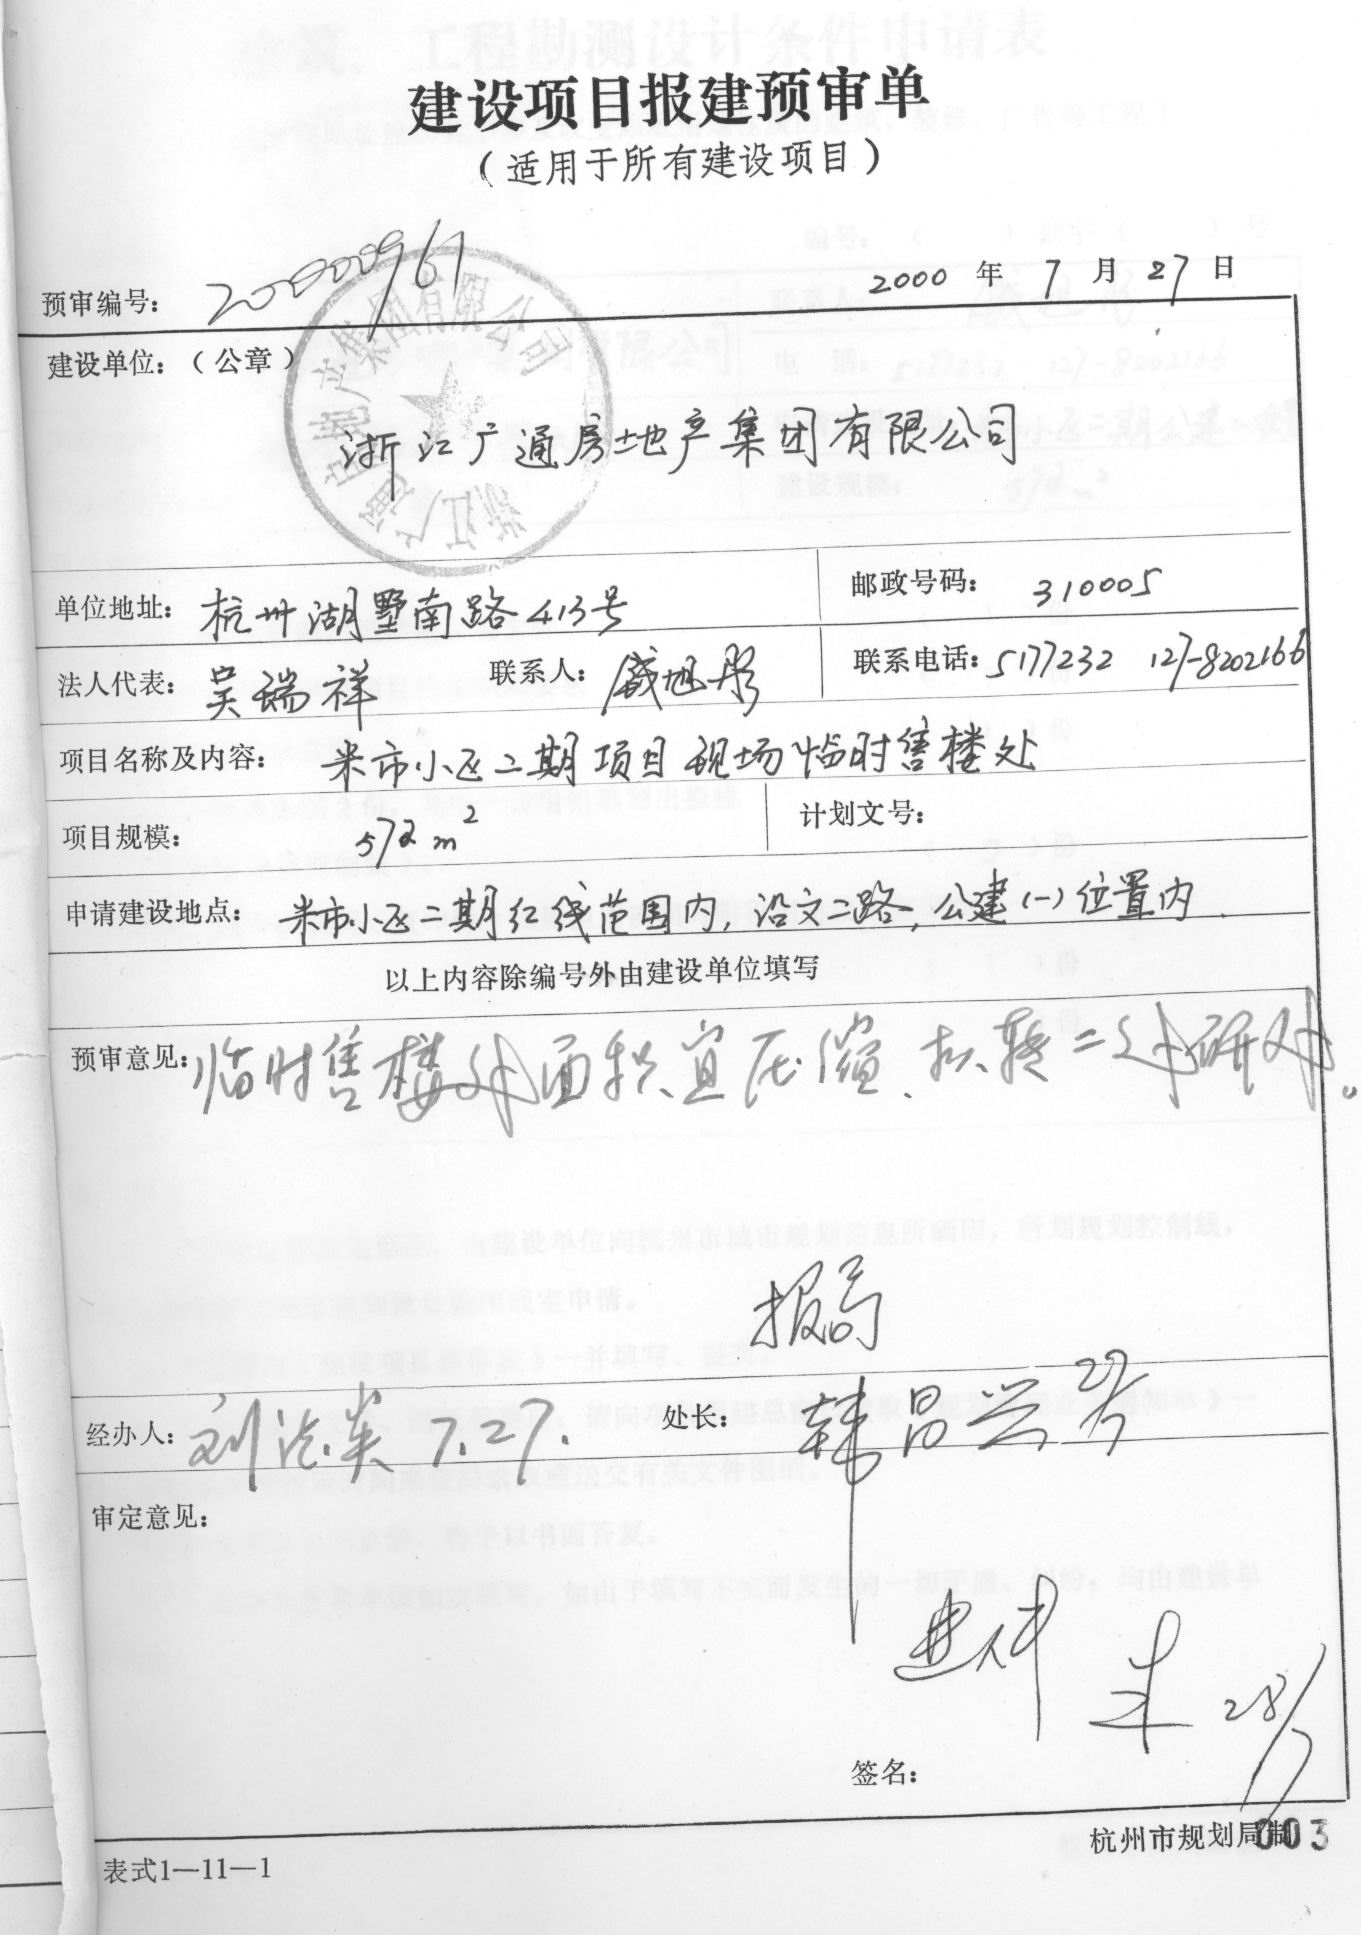 建设项目报建预审单
（适用于所有建设项目）
预审编号： 200000961 2000 年 7 月 27 日
建设单位：（公章）
浙江广通房地产集团有限公司
浙江广通房地产集团有限公司
单位地址： 杭州湖墅南路413号 邮政号码： 310005
法人代表： 吴瑞祥 联系人： 戚旭彤 联系电话： 5177232 127-8202166
项目名称及内容： 米市小区二期项目现场临时售楼处
项目规模： 572m² 计划文号：
申请建设地点： 米市小区二期红线范围内，沿文二路，公建（一）位置内．
以上内容除编号外由建设单位填写
预审意见： 临时售楼处面积宜压缩．拟转二处研处。
报局
经办人： 7.27. 处长： 韩昌兴 27/7
审定意见：
28/7
签名：
表式1—11—1 杭州市规划局制
003